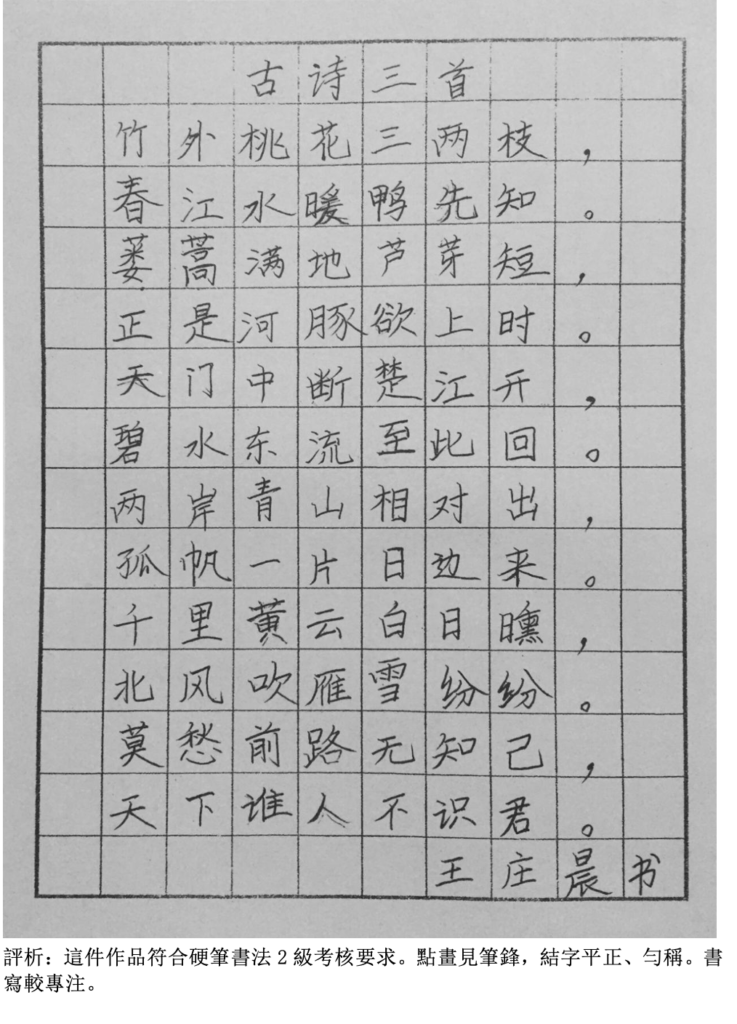 古诗三首
竹外桃花三两枝，
春江水暖鸭先知。
蒌蒿满地芦芽短，
正是河豚欲上时。
天门中断楚江开，
碧水东流至此回。
两岸青山相对出，
孤帆一片日边来。
千里黄云白日曛，
北风吹雁雪纷纷。
莫愁前路无知己，
天下谁人不识君。
王庄晨书
評析：這件作品符合硬筆書法2級考核要求。點畫見筆鋒，結字平正、勻稱。書
寫較專注。